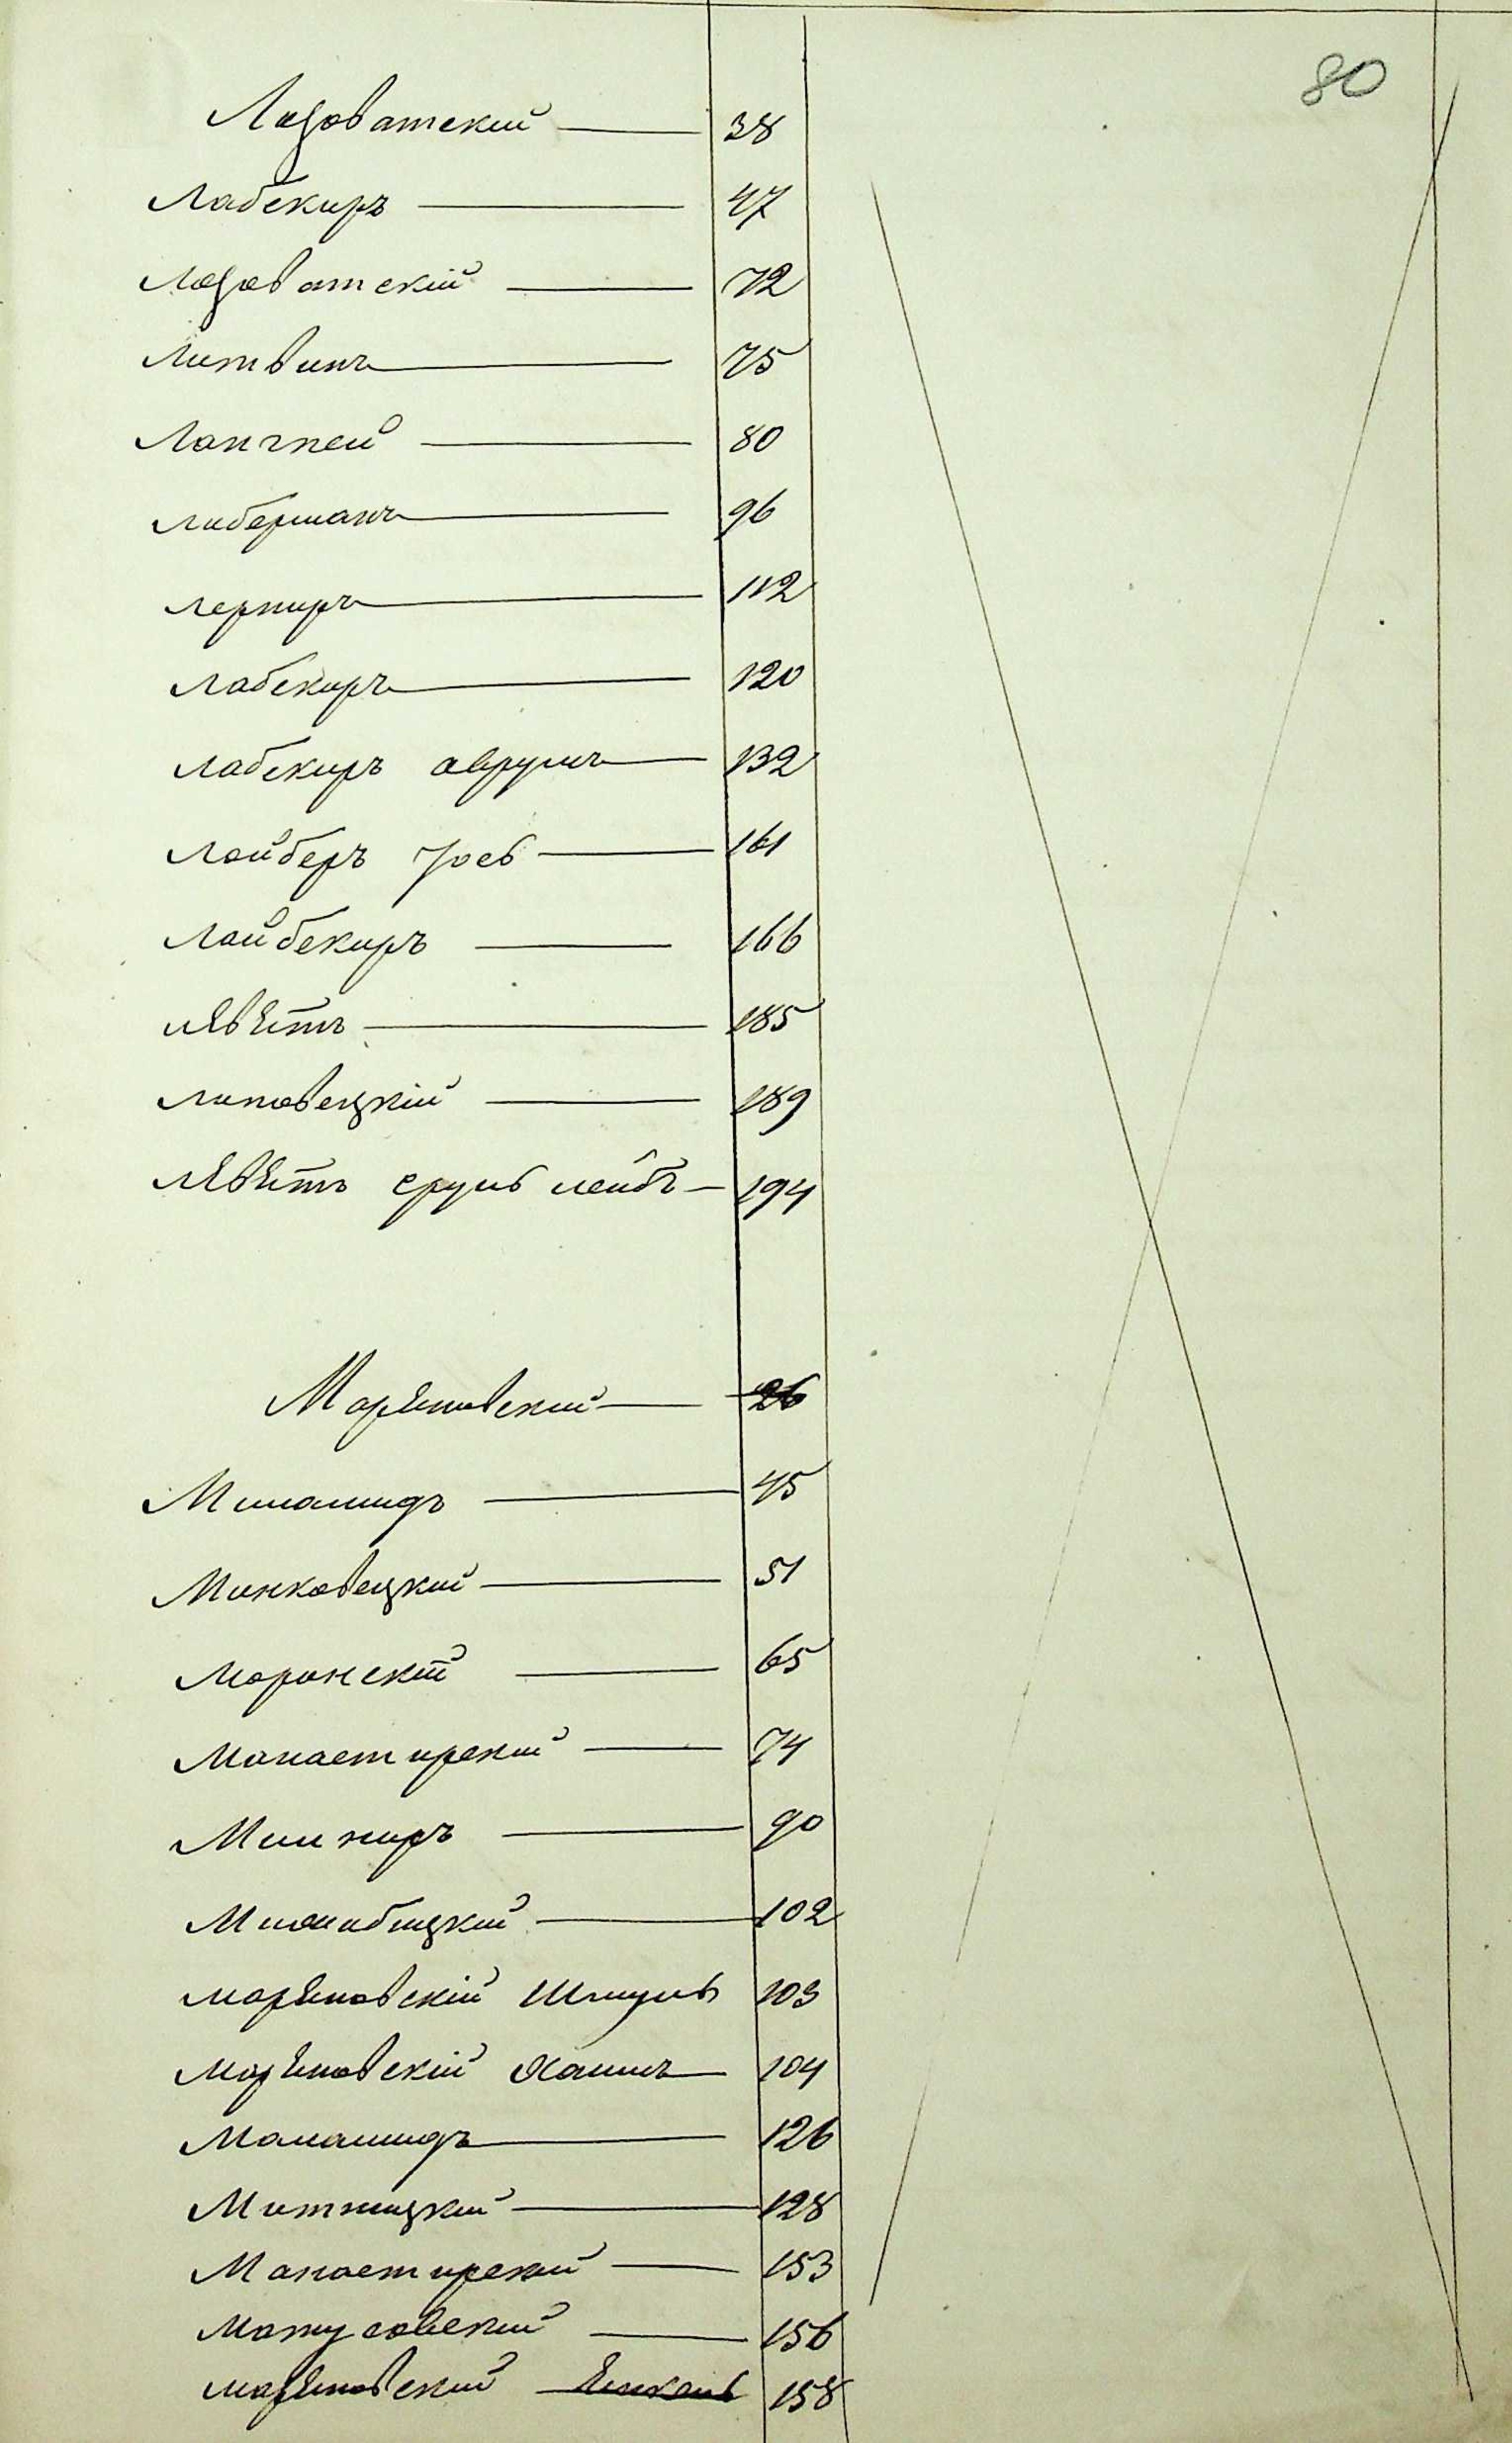 80
Лозоватский 38
Лабскиръ 47
Лозоватскій 72
Литвинъ 75
Лангней 80
Либерманъ 96
Лерниръ 112
Лабскиръ 120
Лабскиръ Аврумъ 132
Лойберъ Іось 161
Лойбскиръ 166
Лѣвѣтъ 185
Липовецкій 189
Лѣвѣтъ Сруль Лейбъ 194
Марѣновский 26
Миламидъ 45
Минковецкий 51
Моронскій 65
Манастирский 74
Мишниръ 90
102
Марѣновскій Шмуль 103
Марѣновскій Хаимъ 104
Маламидъ 126
Митницкий 128
Манастирский 153
Матусовский 156
Марѣновский Ѣнкель 158